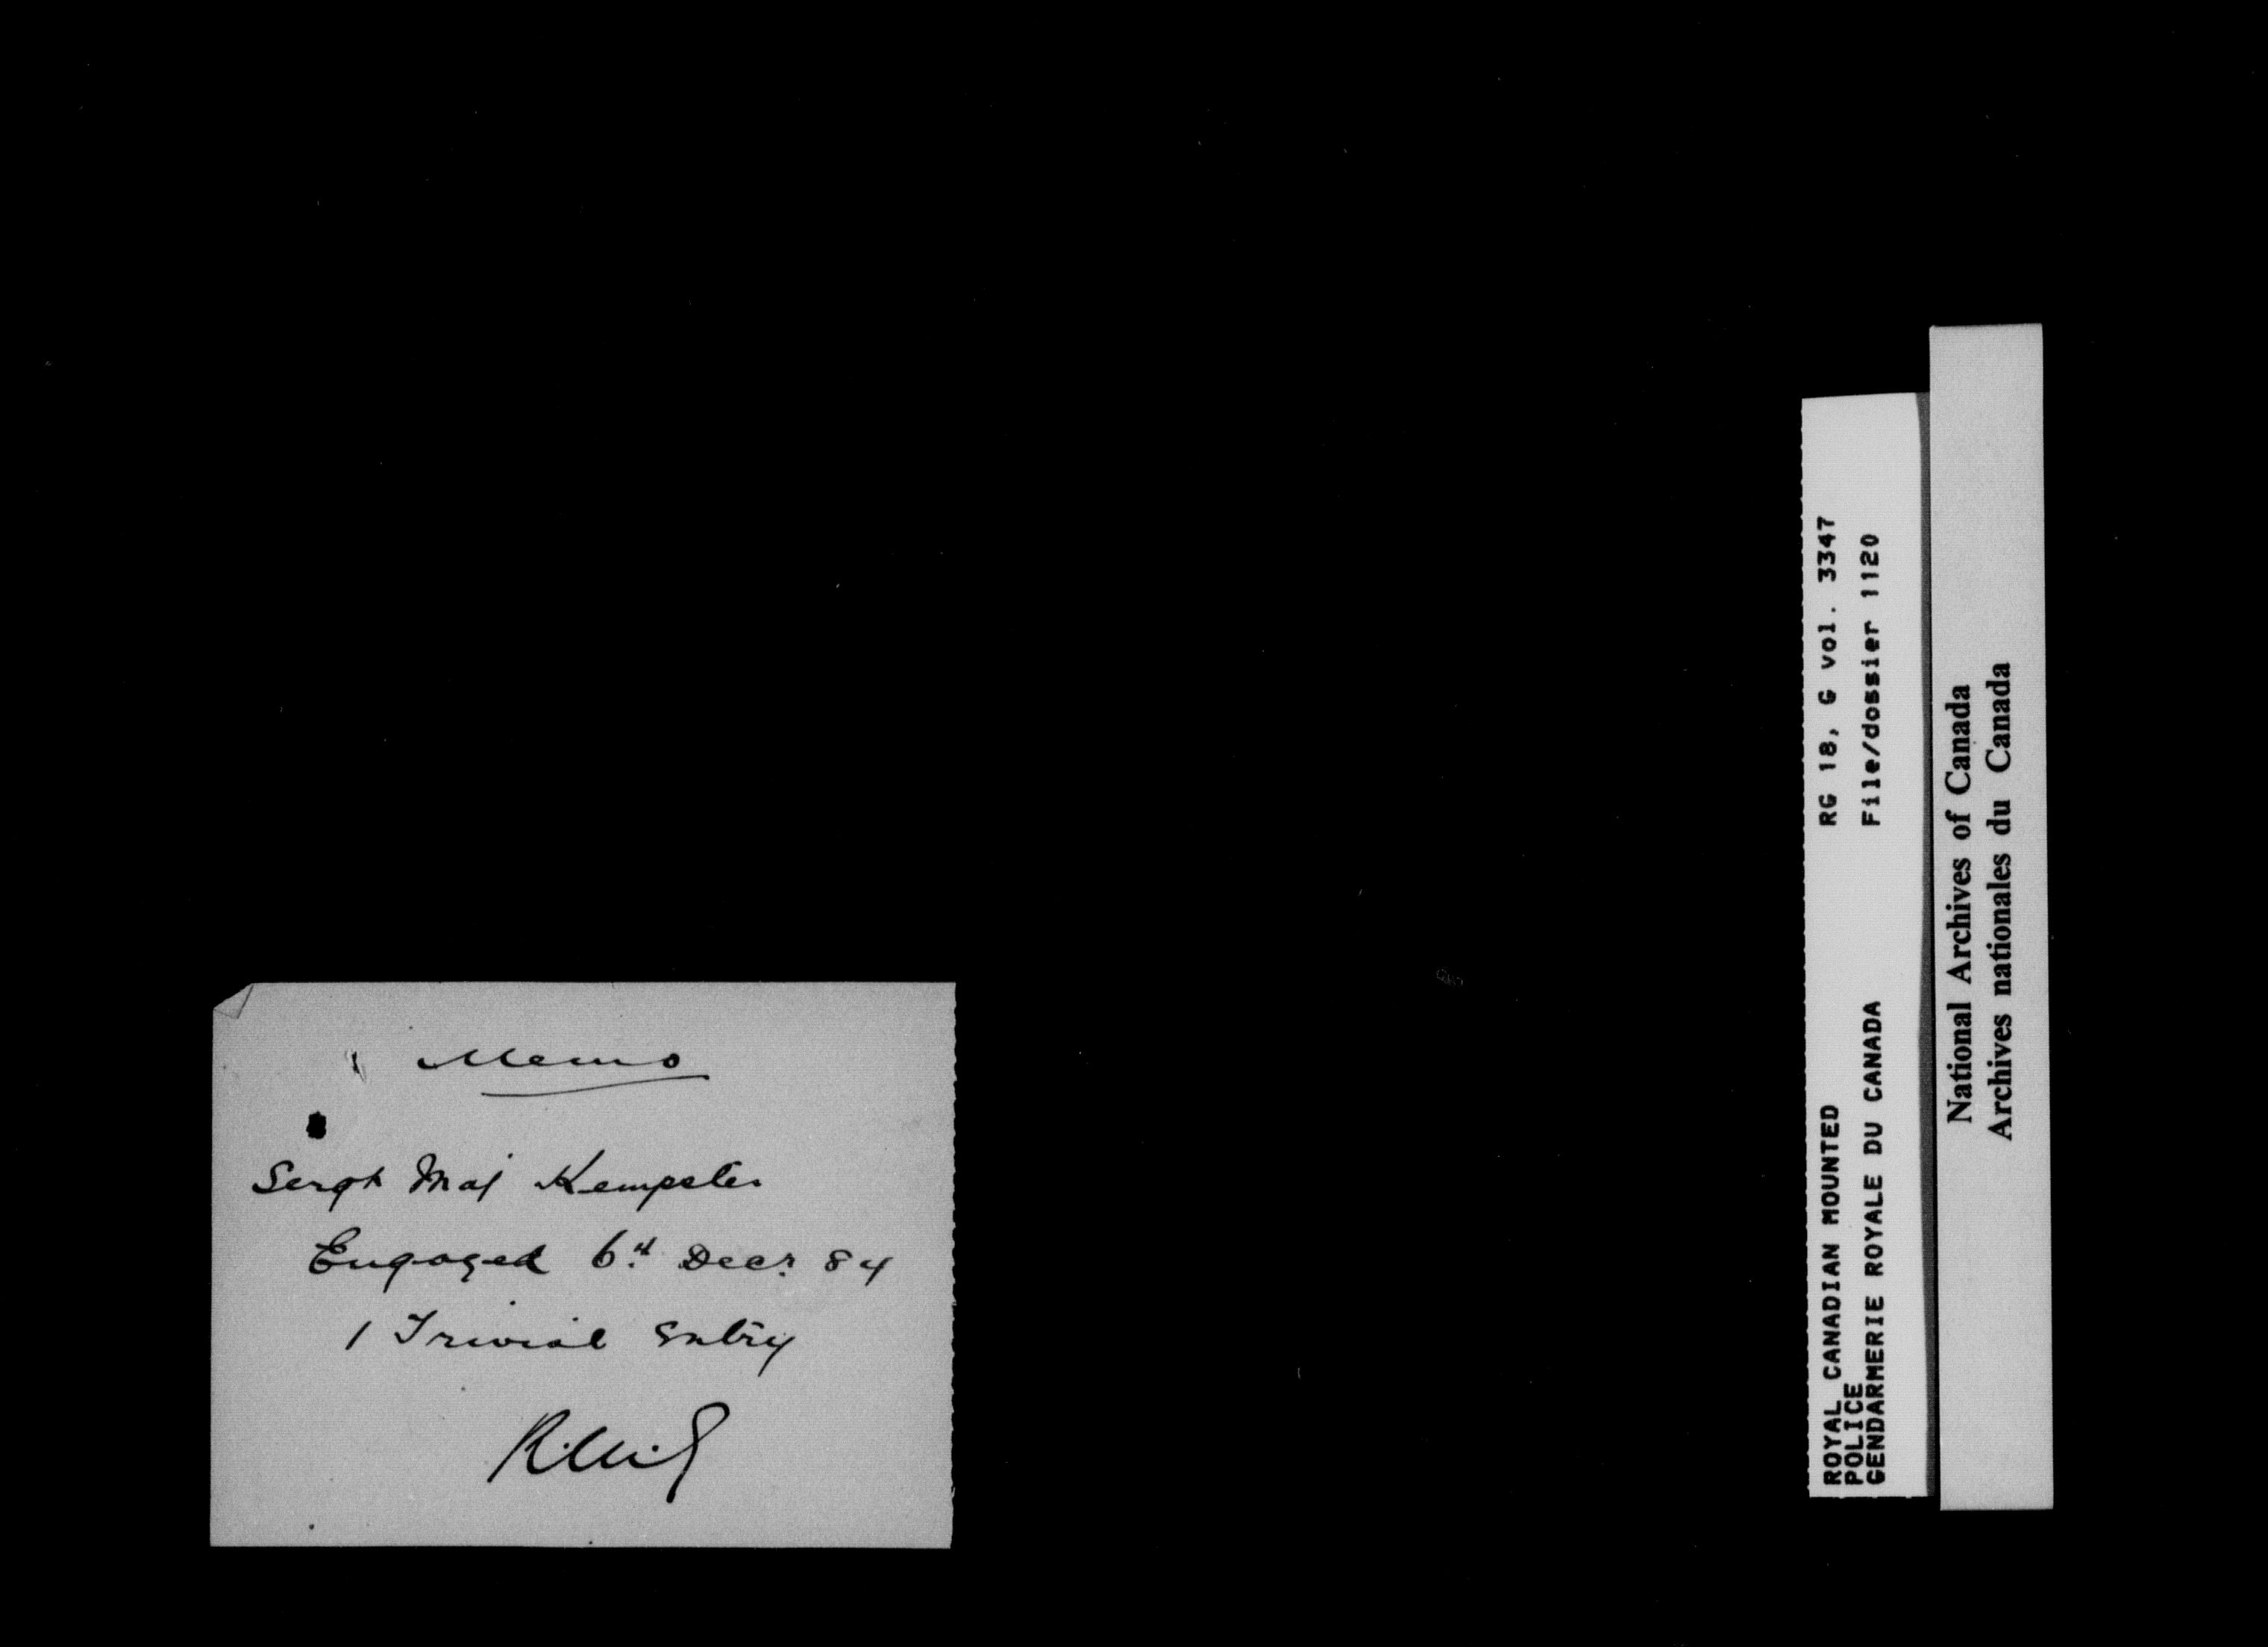 Memo
Sergt Maj Kempster
Engaged 6th Decr. 84
1 Trivial Entry
ROYAL CANADIAN MOUNTED
POLICE
GENDARMERIE ROYALE DU CANADA
RG 18, G vol. 3347
File/dossier 1120
National Archives of Canada
Archives nationales du Canada